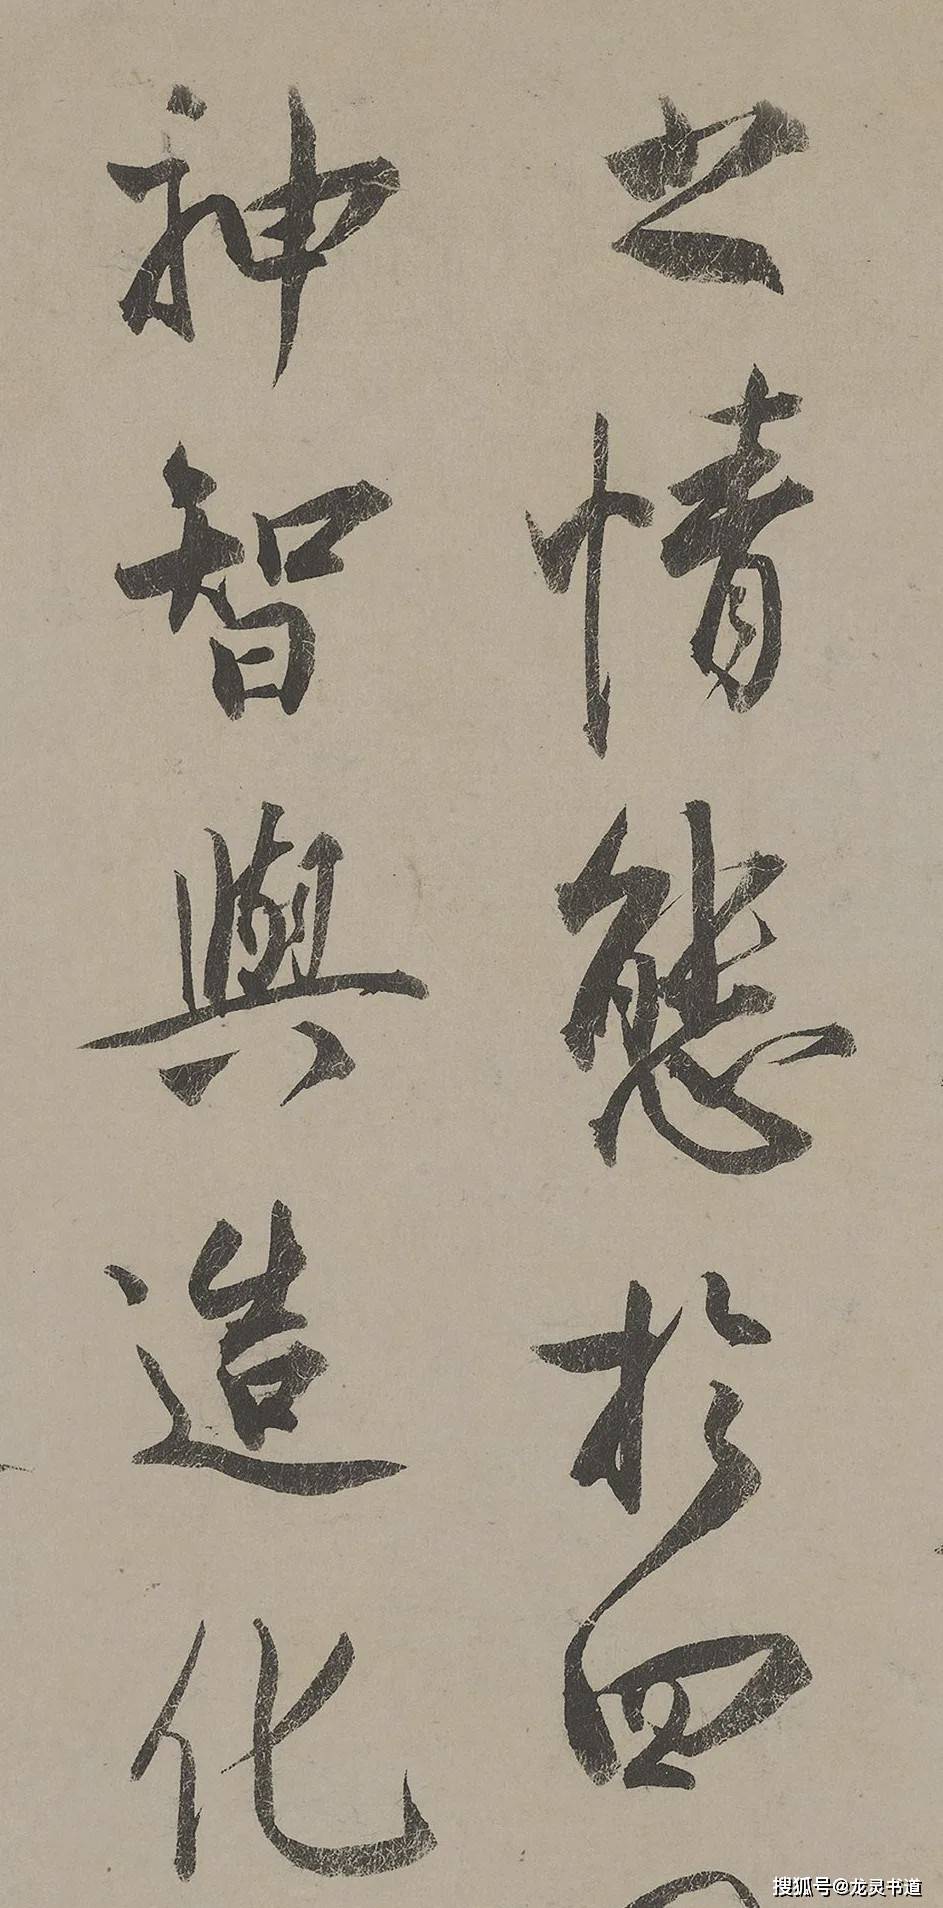 之情態於四
神智與造化
搜狐号@龙灵书道